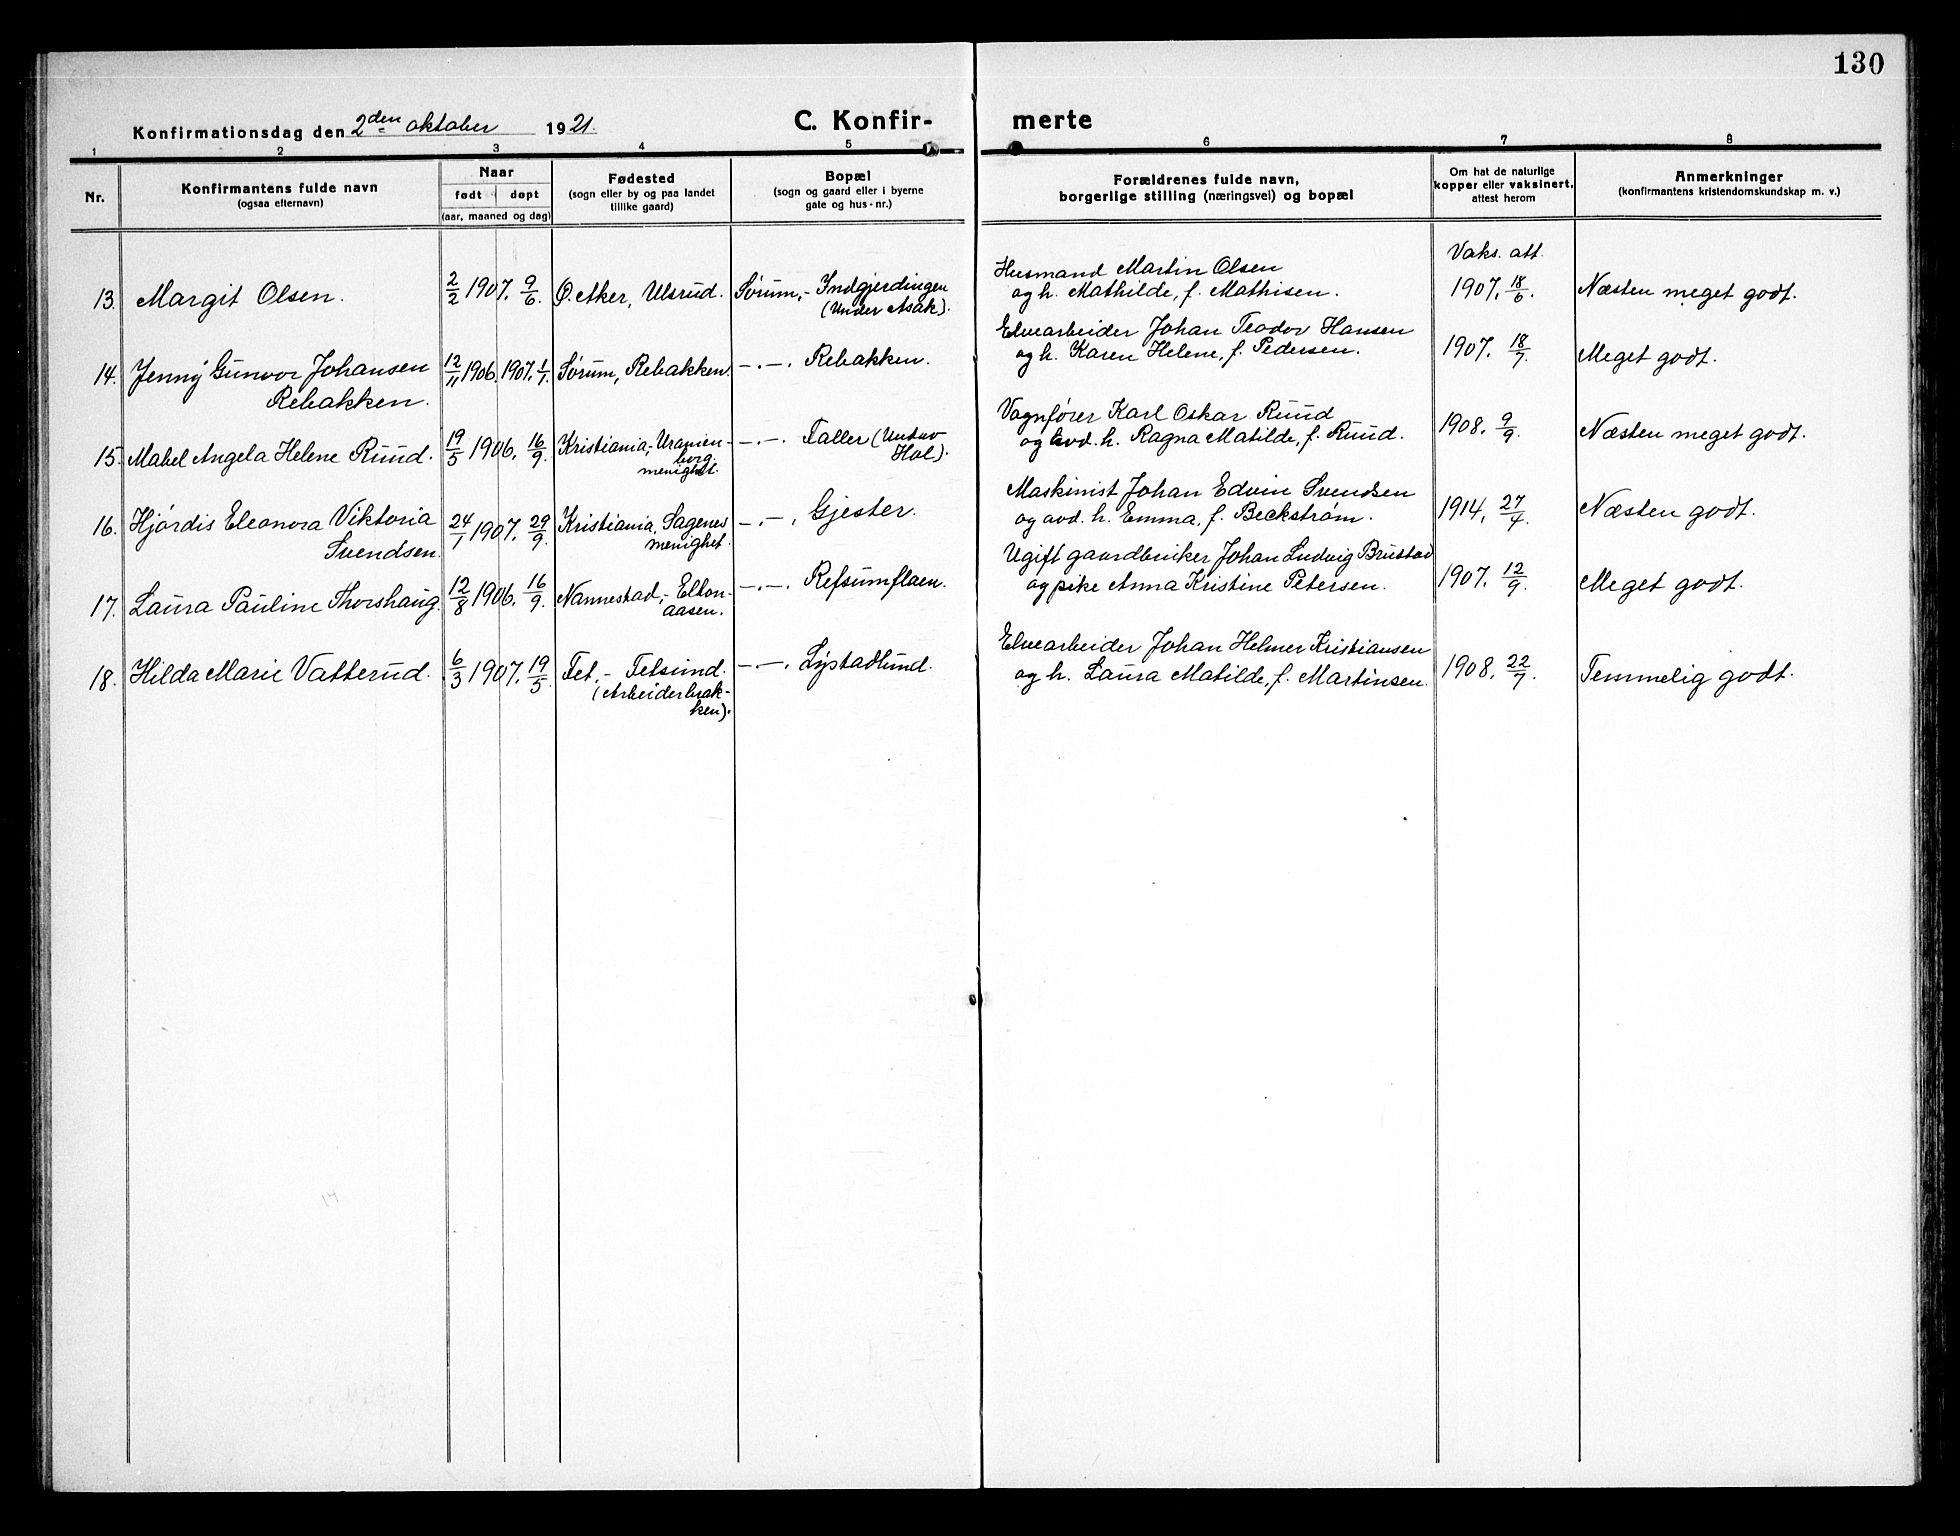 130
Konfirmationsdag den 2den oktober 1921.
C. Konfir-
merte
1 2 3 4 5 6 7 8
Nr.
Konfirmantens fulde navn
(ogsaa efternavn)
Naar
født døpt
(aar, maaned og dag)
Fødested
(sogn eller by og paa landet
tillike gaard)
Bopæl
(sogn og gaard eller i byerne
gate og hus-nr.)
Forældrenes fulde navn,
borgerlige stilling (næringsvei) og bopæl
Om hat de naturlige
kopper eller vaksinert,
attest herom
Anmerkninger
(konfirmantens kristendomskundskap m. v.)
Vaks. att.
13. Margit Olsen. 2/2 1907. 9/6. Ø. Aker, Ulsrud. Sørum,- Indgjerdingen
(Under Asak).
Husmand Martin Olsen
og h. Mathilde, f. Mathisen.
1907. 18/6. Næsten meget godt.
14. Jenny Gunvor Johansen
Rebakken.
12/11 1906. 1907. 1/1. Sørum, Rebakken. -.-. Rebakken.
Elvearbeider Johan Teodor Hansen
og h. Karen Helene, f. Pedersen.
1907. 18/7. Meget godt.
15. Mabel Angela Helene Ruud. 19/5 1906. 16/9. Kristiania,- Uranien-
borg
menighet.
-.-. Faller (Under
Hol).
Vognfører Karl Oskar Ruud
og avd. h. Ragna Matilde, f. Ruud.
1908. 9/9. Næsten meget godt.
16. Hjørdis Eleonora Viktoria
Svendsen.
24/1 1907. 29/9. Kristiania, Sagenes
menighet.
-.-. Gjester.
Maskinist Johan Edvin Svendsen
og avd. h. Emma, f. Beckstrøm.
1914. 27/4. Næsten godt.
17. Laura Pauline Thorshaug. 12/8 1906. 16/9. Nannestad,- Elton-
aasen.
-.-. Refsumflaen.
Ugift gaardbruker Johan Ludvig Brustad
og pike Anna Kristine Petersen.
1907. 12/9. Meget godt.
18. Hilda Marie Vatterud. 6/3 1907. 19/5. Fet,- Fetsund.
(Arbeiderbrak-
ken).
-.-. Lystadlund.
Elvearbeider Johan Helmer Kristiansen
og h. Laura Matilde, f. Martinsen.
1908. 22/7. Temmelig godt.